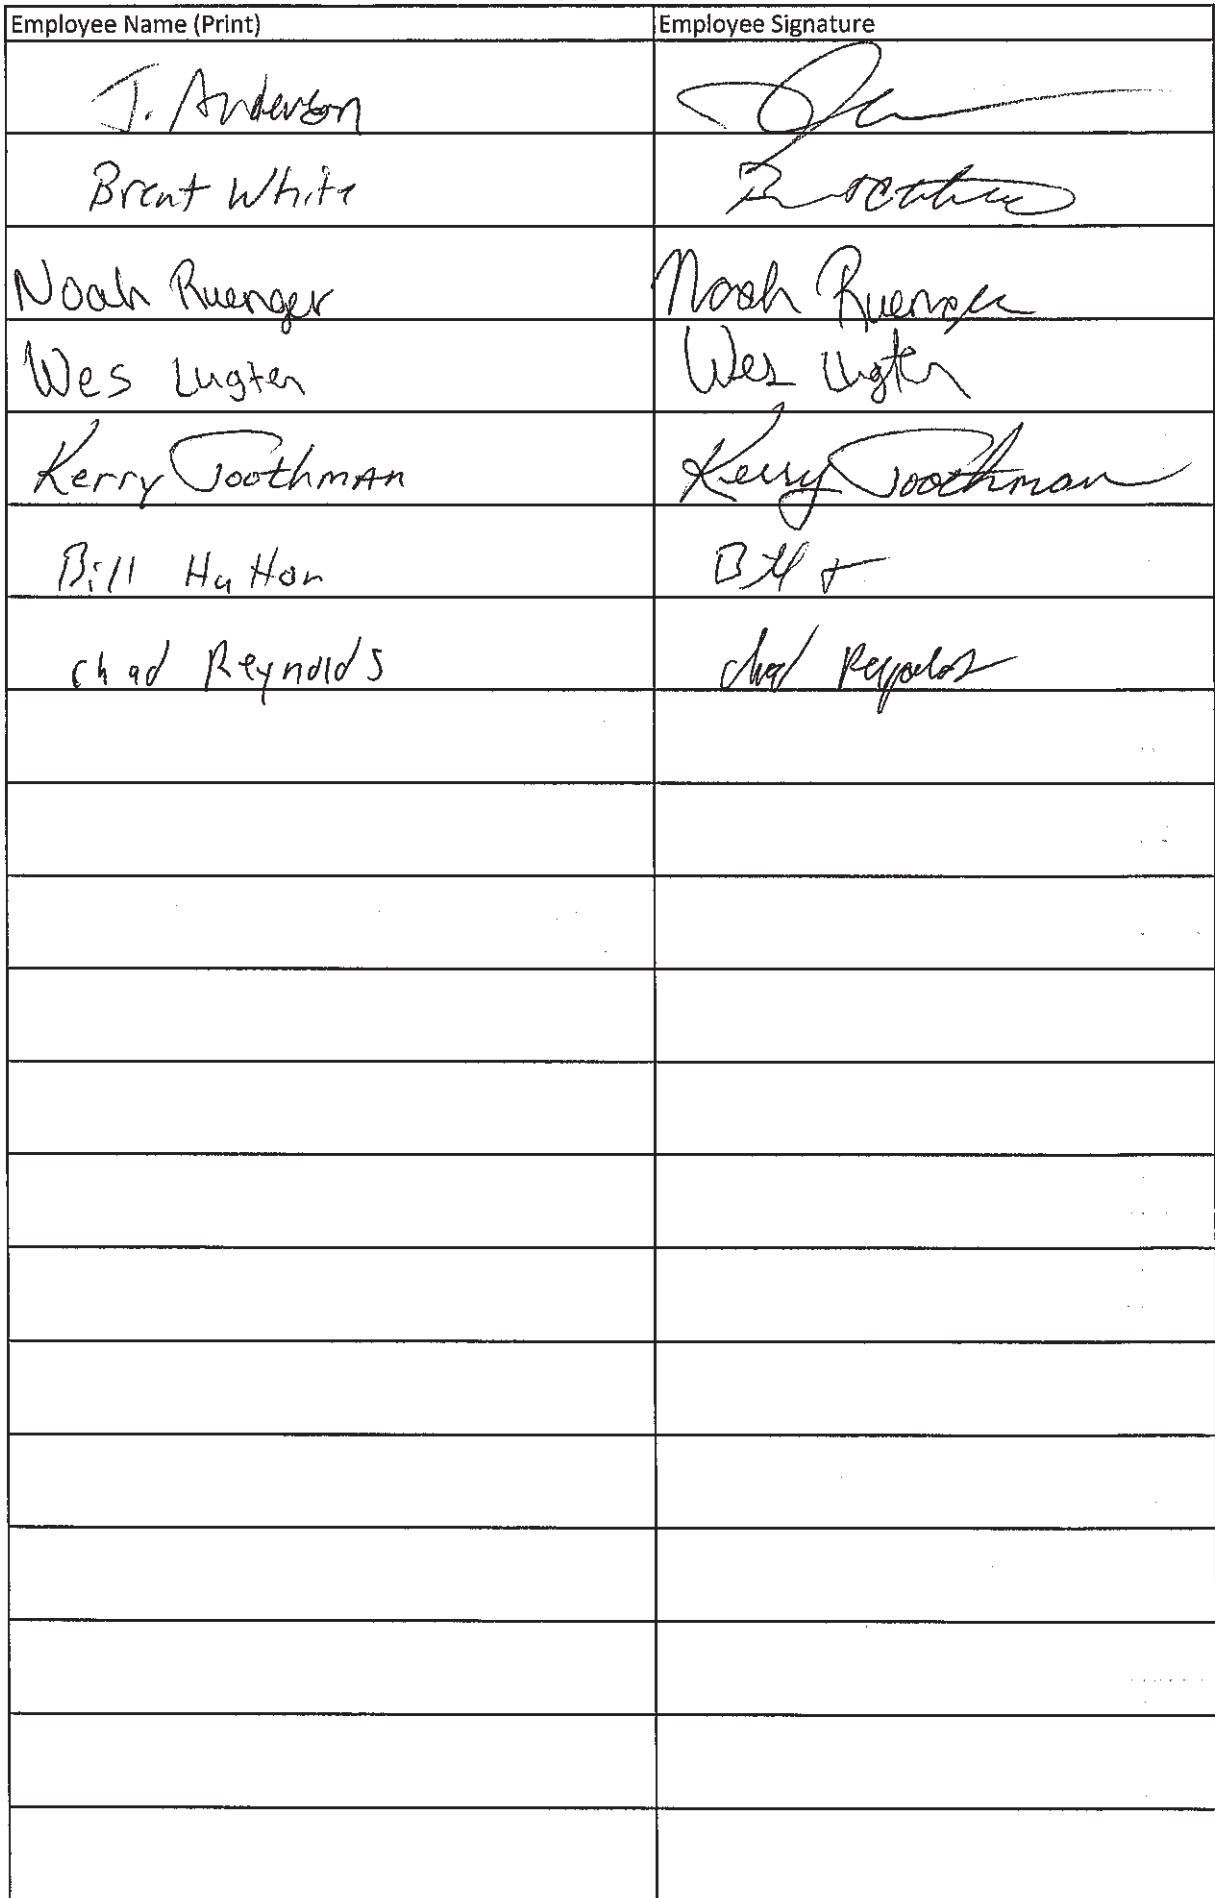 Employee Name (Print) Employee Signature
J. Anderson
Brent White
Noah Ruenger Noah Ruenger
Wes Lugten Wes Lugten
Kerry Toothman Kerry Toothman
Bill Hutton
chad Reynolds chad Reynolds